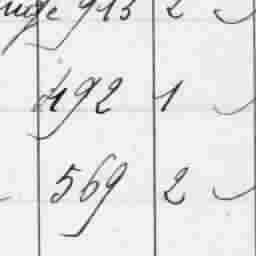 913 2
492 1
569 2